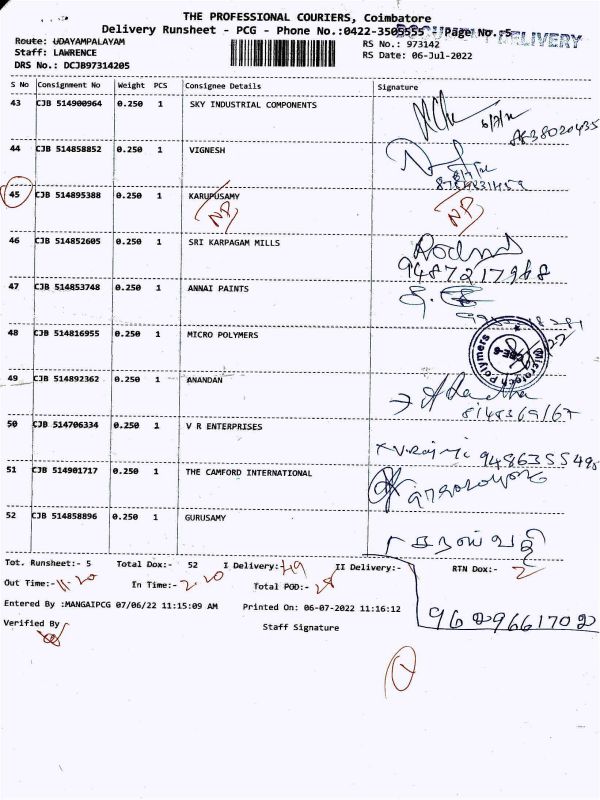 THE PROFESSIONAL COURIERS, Coimbatore
Delivery Runsheet - PCG - Phone No.:0422-3505555 - Page No.:5
DELIVERY
Route: UDAYAMPALAYAM
Staff: LAWRENCE
DRS No.: DCJB97314205
RS No.: 973142
RS Date: 06-Jul-2022
S No Consignment No Weight PCS Consignee Details Signature
43 CJB 514900964 0.250 1 SKY INDUSTRIAL COMPONENTS
44 CJB 514858852 0.250 1 VIGNESH
45 CJB 514895388 0.250 1 KARUPUSAMY
NP NP
46 CJB 514852605 0.250 1 SRI KARPAGAM MILLS
9487217968
47 CJB 514853748 0.250 1 ANNAI PAINTS
48 CJB 514816955 1 MICRO POLYMERS
Microtech Polymers
CBE-6
49 CJB 514892362 0.250 1 ANANDAN
8148369167
50 CJB 514706334 0.250 1 V R ENTERPRISES
51 CJB 514901717 0.250 1 THE CAMFORD INTERNATIONAL
52 CJB 514858896 0.250 1 GURUSAMY
சரஸ்வதி
Tot. Runsheet:- 5 Total Dox:- 52 I Delivery:- 49 II Delivery:- RTN Dox:- 2
Out Time:- 11.20 In Time:- 2.20 Total POD:-
Entered By :MANGAIPCG 07/06/22 11:15:09 AM Printed On: 06-07-2022 11:16:12
Verified By Staff Signature